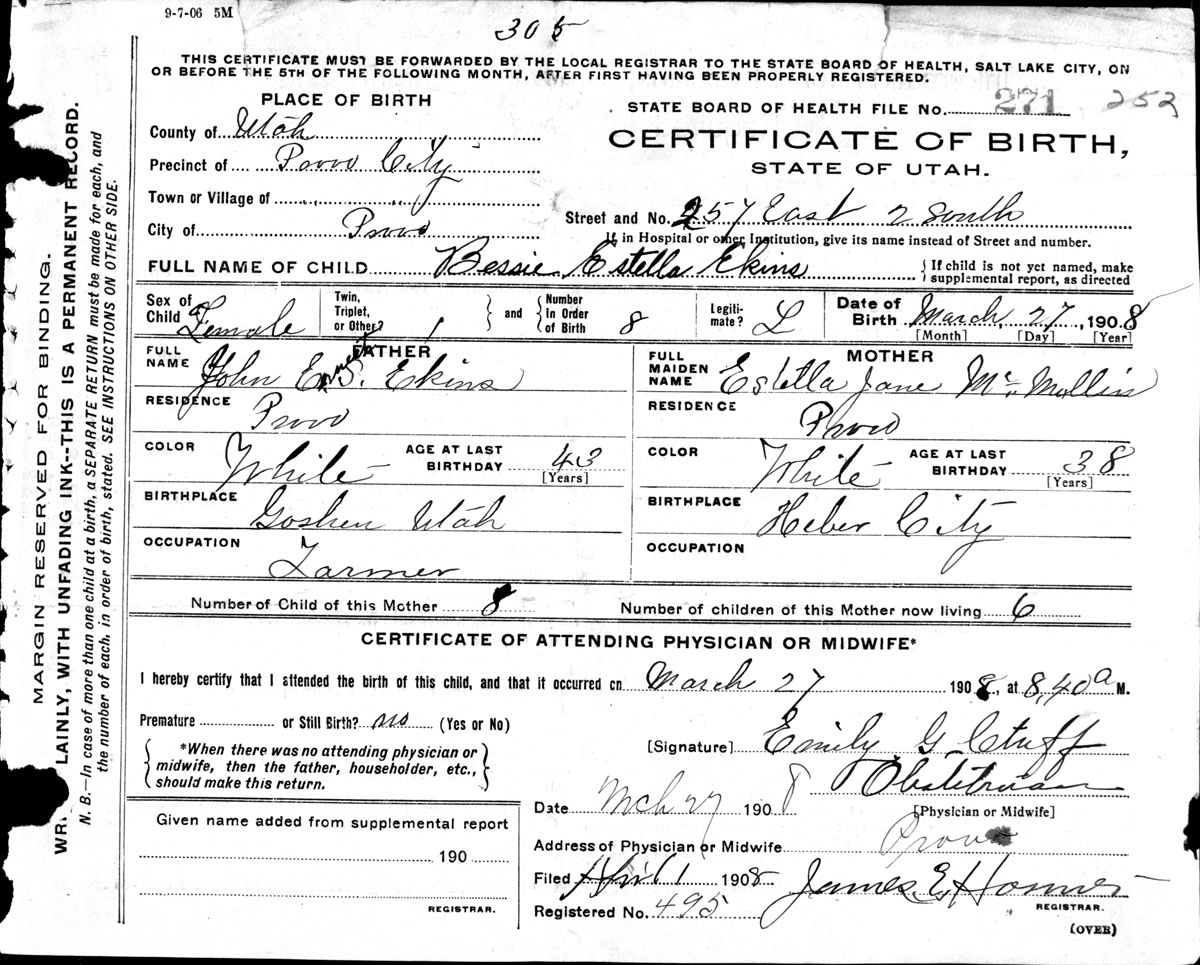 9-7-06 5M
305
THIS CERTIFICATE MUST BE FORWARDED BY THE LOCAL REGISTRAR TO THE STATE BOARD OF HEALTH, SALT LAKE CITY, ON
OR BEFORE THE 5TH OF THE FOLLOWING MONTH, AFTER FIRST HAVING BEEN PROPERLY REGISTERED.
PLACE OF BIRTH
County of Utah
Precinct of Provo City
Town or Village of
City of Provo
STATE BOARD OF HEALTH FILE No. 271 252
CERTIFICATE OF BIRTH,
STATE OF UTAH.
Street and No. 257 East 2 South
If in Hospital or other Institution, give its name instead of Street and number.
FULL NAME OF CHILD Bessie Estella Ekins
{If child is not yet named, make
supplemental report, as directed
Sex of Child Female
Twin, Triplet, or Other? 1
and
Number In Order of Birth 8
Legiti-mate? L
Date of Birth March, 27, 1908
[Month] [Day] [Year]
FATHER
FULL NAME John E. Ekins
RESIDENCE Provo
COLOR White
AGE AT LAST BIRTHDAY 43
[Years]
BIRTHPLACE Goshen Utah
OCCUPATION Farmer
MOTHER
FULL MAIDEN NAME Estella Jane McMullin
RESIDENCE Provo
COLOR White
AGE AT LAST BIRTHDAY 38
[Years]
BIRTHPLACE Heber City
OCCUPATION
Number of Child of this Mother 8 Number of children of this Mother now living 6
CERTIFICATE OF ATTENDING PHYSICIAN OR MIDWIFE*
I hereby certify that I attended the birth of this child, and that it occurred on March 27 1908, at 8,40 a M.
Premature or Still Birth? no (Yes or No)
*When there was no attending physician or
midwife, then the father, householder, etc.,
should make this return.
[Signature] Emily G. Cluff
Obstetrician
Date Mch 27 1908 [Physician or Midwife]
Given name added from supplemental report
190
REGISTRAR.
Address of Physician or Midwife Provo
Filed April 1 1908 James E. Homer
REGISTRAR.
Registered No. 495
(OVER)
MARGIN RESERVED FOR BINDING.
WR LAINLY, WITH UNFADING INK--THIS IS A PERMANENT RECORD.
N. B.—In case of more than one child at a birth, a SEPARATE RETURN must be made for each, and
the number of each, in order of birth, stated. SEE INSTRUCTIONS ON OTHER SIDE.